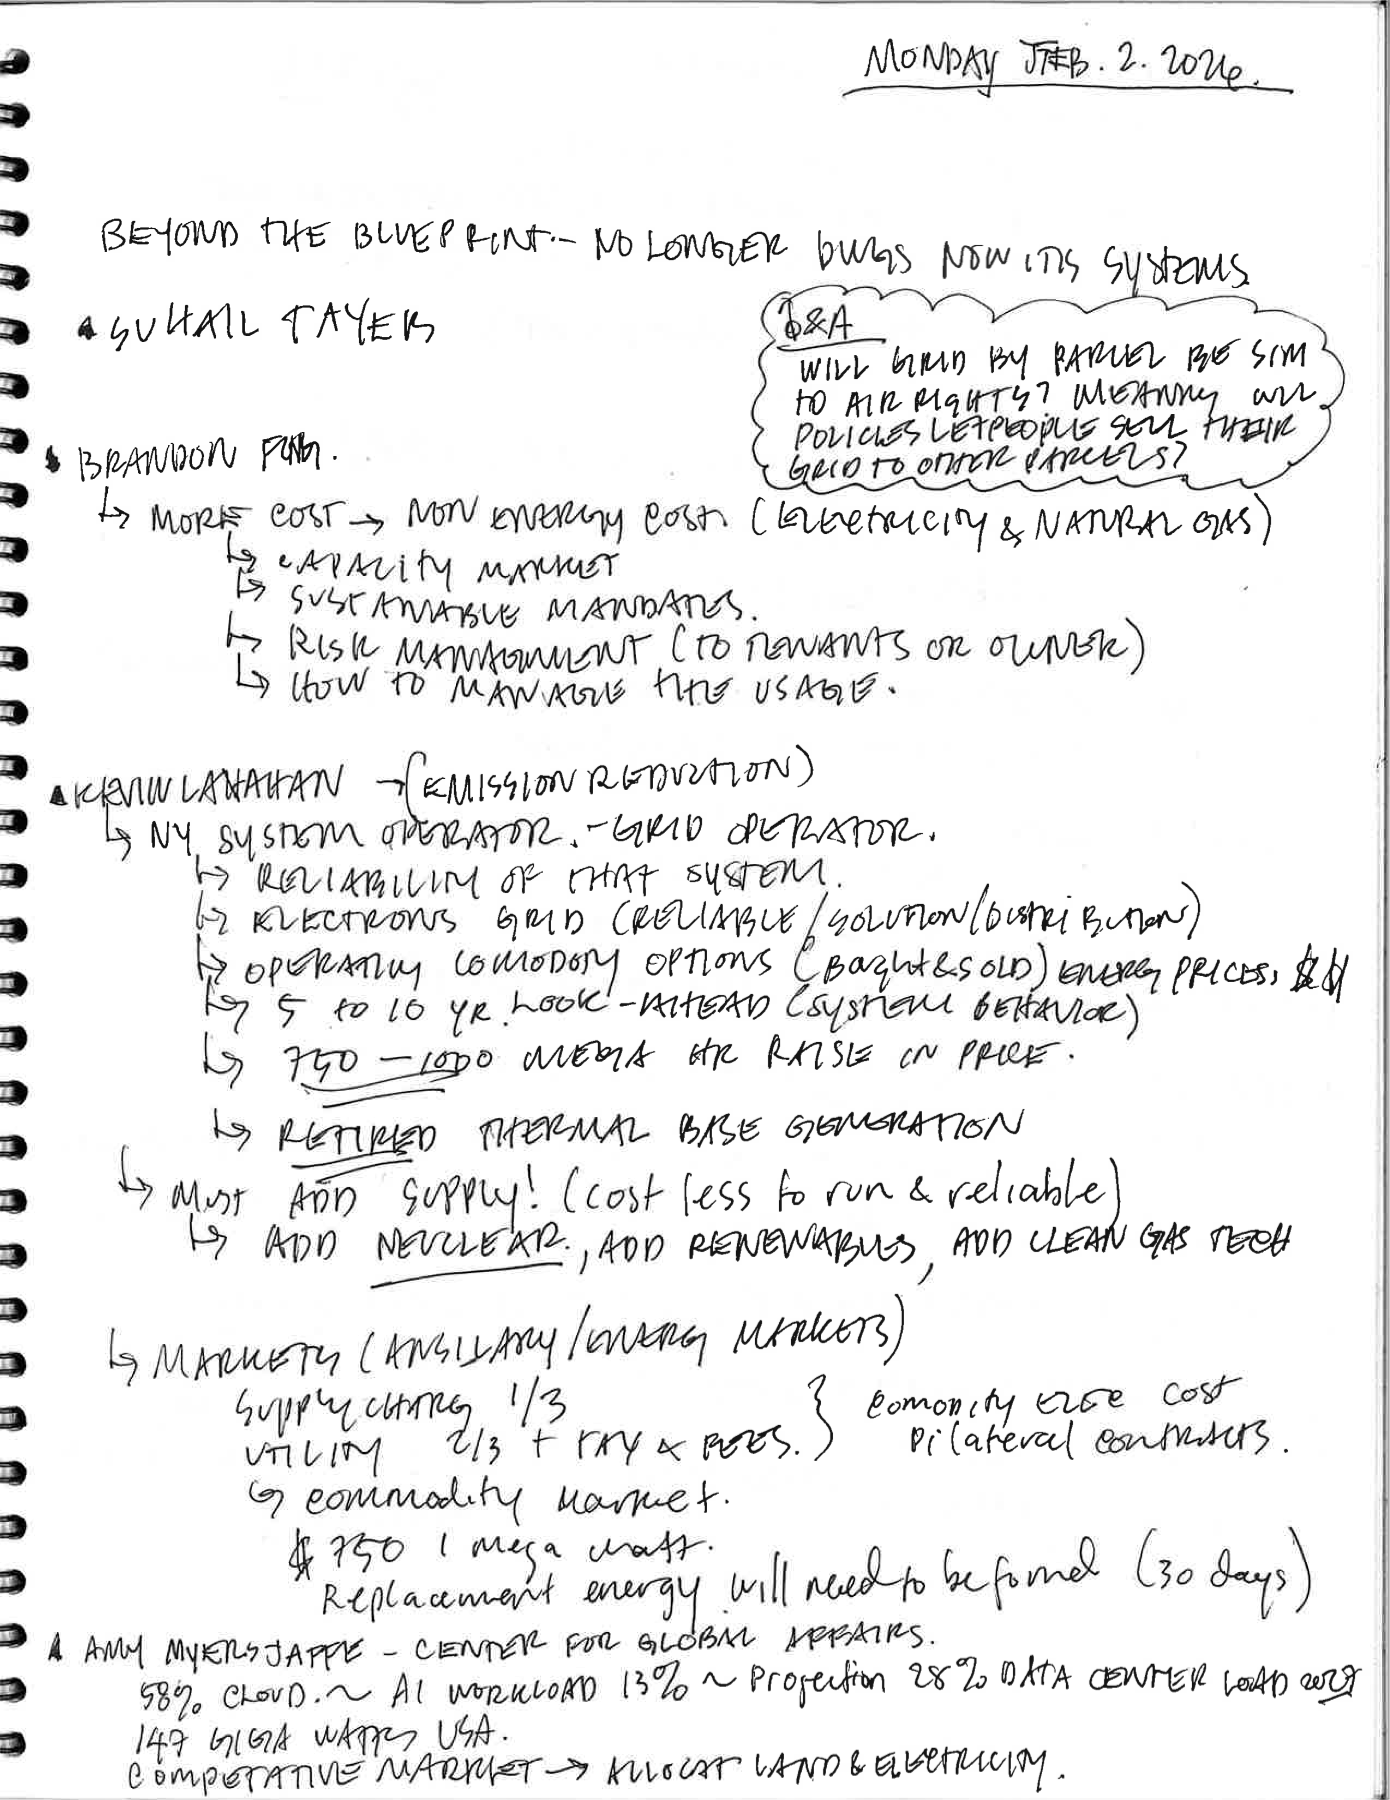 MONDAY FEB. 2. 2026.
BEYOND THE BLUEPRINT - NO LONGER BLDGS NOW ITS SYSTEMS.
SUHAIL TAYEB
Q&A
WILL GRID BY PARCEL BE SIM
TO AIR RIGHTS? MEANING WILL
POLICIES LET PEOPLE SELL THEIR
GRID TO OTHER PARCELS?
BRANDON
↳ MORE COST → NON ENERGY COST. (ELECTRICITY & NATURAL GAS)
↳ CAPACITY MARKET
↳ SUSTAINABLE MANDATES.
↳ RISK MANAGEMENT (TO TENANTS OR OWNER)
↳ HOW TO MANAGE THE USAGE.
KEVIN LANAHAN → (EMISSION REDUCTION)
↳ NY SYSTEM OPERATOR. - GRID OPERATOR.
↳ RELIABILITY OF THAT SYSTEM.
↳ ELECTRONS GRID (RELIABLE/SOLUTION/DISTRIBUTION)
↳ OPERATING COMODOTY OPTIONS (BOUGHT & SOLD) ENERGY PRICES,
↳ 5 TO 10 YR. LOOK-AHEAD (SYSTEM BEHAVIOR)
↳ 750 - 1000 MEGA HR RAISE IN PRICE.
↳ RETIRED THERMAL BASE GENERATION
↳ Must ADD SUPPLY! (cost less to run & reliable)
↳ ADD NEUCLEAR., ADD RENEWABLES, ADD CLEAN GAS TECH
↳ MARKETS (ANSILARY/ENERGY MARKETS)
Supply CHARG 1/3 } Comonity cost
UTILITY 2/3 + TAX & FEES. } Bilateral CONTRACTS.
↳ commodity market.
$ 750 1 mega watt.
Replacement energy will need to be found (30 days)
AMY MYERS JAFFE - CENTER FOR GLOBAL AFFAIRS.
58% CLOUD. ~ AI WORKLOAD 13% ~ Projection 28% DATA CENTER LOAD 2027
147 GIGA WATTS USA.
COMPETATIVE MARKET → ALLOCAT LAND & ELECTRICITY.